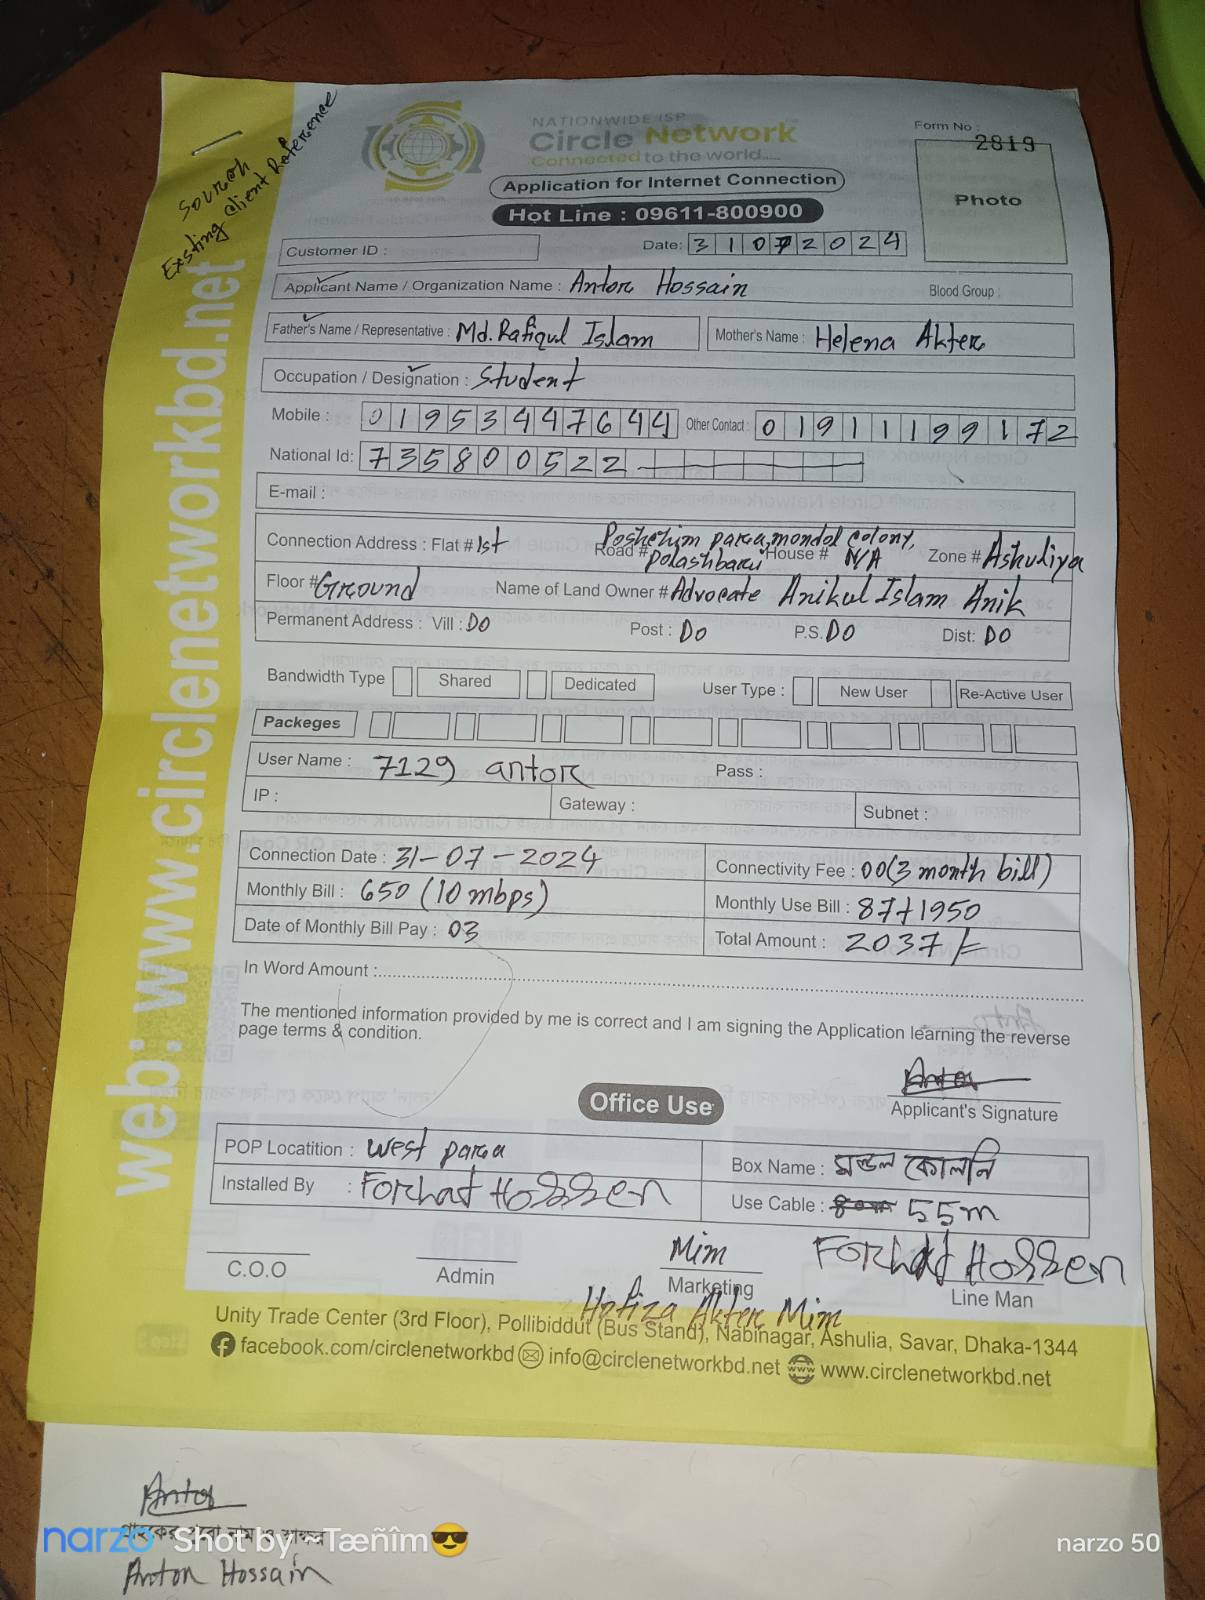 Sourch
Existing client Reference
web: www.circlenetworkbd.net
NATIONWIDE ISP
Circle Network™
Connected to the world.....
Application for Internet Connection
Hot Line : 09611-800900
Form No :
2819
Photo
Customer ID :
Date: 31072024
Applicant Name / Organization Name : Antor Hossain
Blood Group :
Father's Name / Representative : Md. Rafiqul Islam
Mother's Name : Helena Akter
Occupation / Designation : Student
Mobile : 01953447644 Other Contact : 01911199172
National Id: 735800522
E-mail :
Poshchim para, mondol colony,
Connection Address : Flat # 1st Road # polashbari House # N/A Zone # Ashuliya
Floor # Ground Name of Land Owner # Advocate Anikul Islam Anik
Permanent Address : Vill : DO Post : DO P.S. DO Dist: DO
Bandwidth Type Shared Dedicated User Type : New User Re-Active User
Packeges
User Name : 7129 antor Pass :
IP : Gateway : Subnet :
Connection Date : 31-07-2024 Connectivity Fee : 00(3 month bill)
Monthly Bill : 650 (10 mbps) Monthly Use Bill : 87+1950
Date of Monthly Bill Pay : 03 Total Amount : 2037/=
In Word Amount :
The mentioned information provided by me is correct and I am signing the Application learning the reverse
page terms & condition.
Antor
Applicant's Signature
Office Use
POP Locatition : West para Box Name : মন্ডল কোলনি
Installed By : Forhad Hossen Use Cable : 55m
Mim Forhad Hossen
C.O.O Admin Marketing Line Man
Hafiza Akter Mim
Unity Trade Center (3rd Floor), Pollibiddut (Bus Stand), Nabinagar, Ashulia, Savar, Dhaka-1344
facebook.com/circlenetworkbd info@circlenetworkbd.net www.circlenetworkbd.net
Antor
narzo Shot by ~Tæñîm😎 narzo 50
Anton Hossain